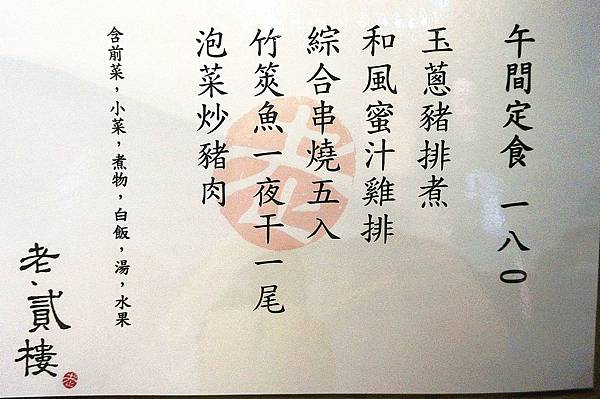 午間定食 一八〇
玉蔥豬排煮
和風蜜汁雞排
綜合串燒五入
竹筴魚一夜干一尾
泡菜炒豬肉
含前菜，小菜，煮物，白飯，湯，水果
老．貳樓